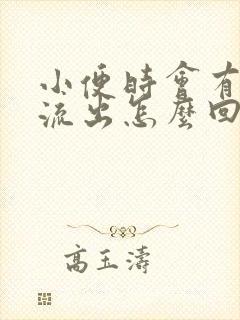 小便時會有
流出怎麼回
高玉濤